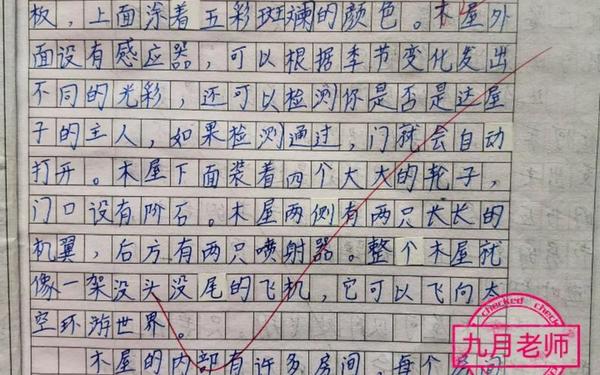 板，上面涂着五彩斑斓的颜色。木屋外
面设有感应器，可以根据季节变化发出
不同的光彩，还可以检测你是否是这屋
子的主人，如果检测通过，门就会自动
打开。木屋下面装着四个大大的轮子，
门口设有阶石。木屋两侧有两只长长的
机翼，后方有两只喷射器。整个木屋就
像一架没头没尾的飞机，它可以飞向太
空环游世界。
木屋的内部有许多房间，每个房间
checked checked
九月老师